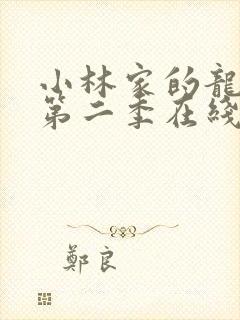 小林家的龍
第二季在綫
鄭良